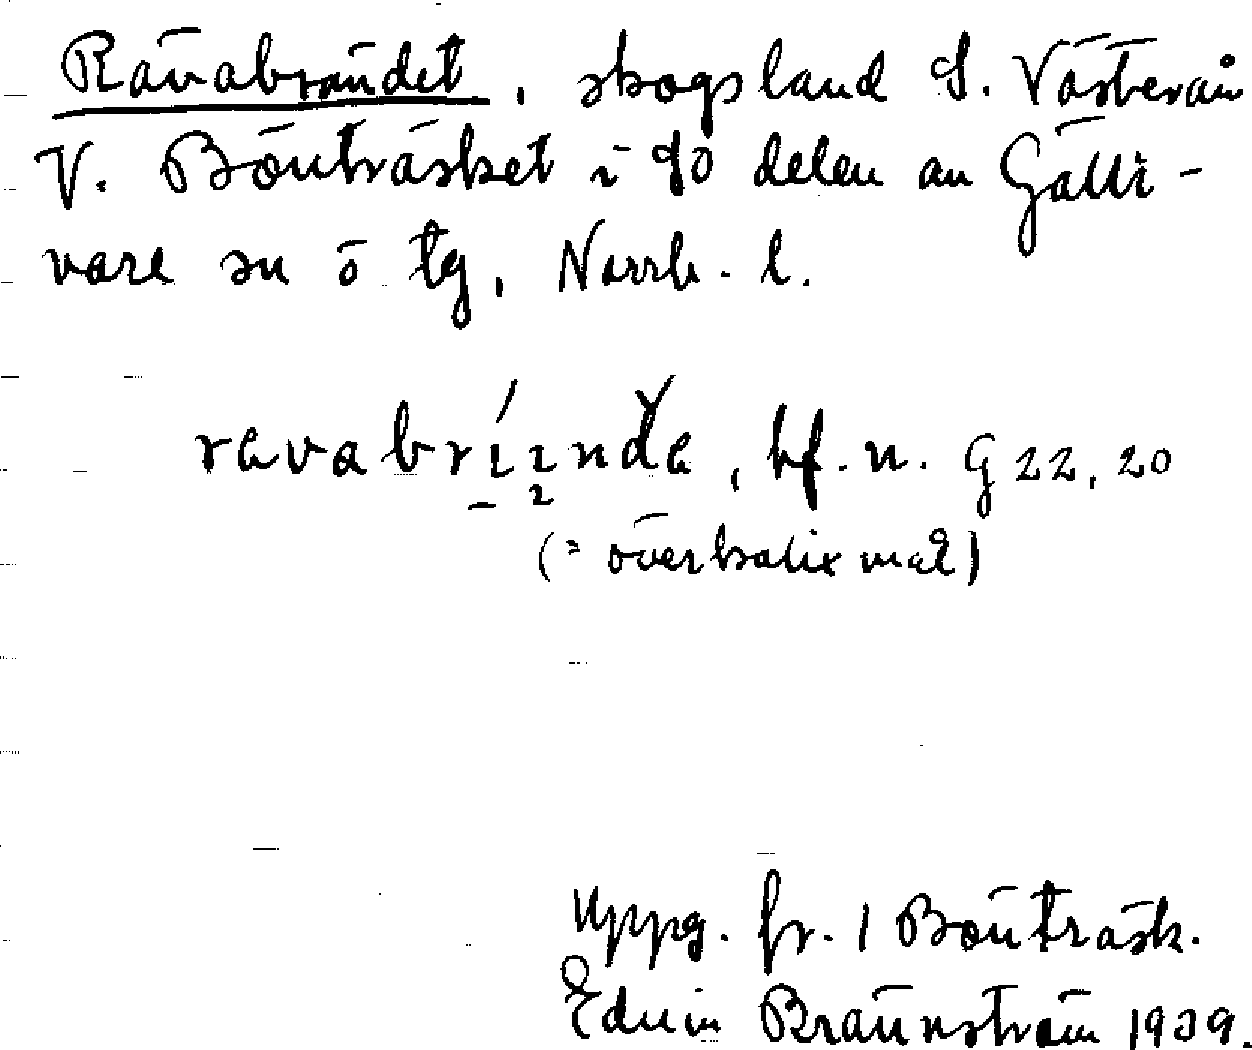 Rävabrändet, skogsland S. Västerån
V. Bönträsket i sö delen av Gälli-
vare sn ö tg, Norrb. l.
ravabrıındα, bf. n. G 22, 20
(= överkalixmål)
Uppg. fr. 1 Bönträsk.
Edvin Brännström 1939.